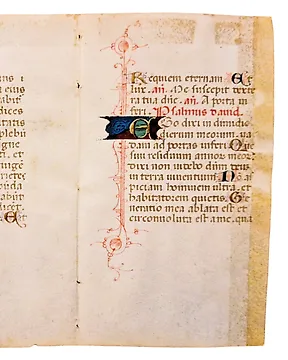 ius i
n eius
habit
dices
itatis
plebū
gue
ti. et
inique
etur
onda
habūt
dicet.
s. Et
Requiem eternam Et
lux. añ. Me suscepit dexte
ra tua dñe. añ. A porta in
feri. Psalmus dauid.
Ego dixi in dimidio
dierum meorum. va
dam ad portas inferi. Que
siui residuum annor meor.
dixi non videbo dñm deus
in terra viuentium. Nō as
piciam hominem ultra. et
habitatorem quietis. Ge
neratio mea ablata est et
circonuoluta est a me. qua